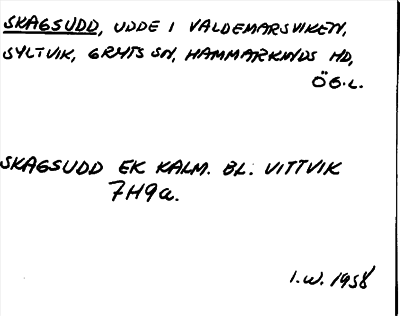 SKAGSUDD, UDDE I VALDEMARSVIKEN,
SYLTVIK, GRYTS SN, HAMMARKINDS HD,
ÖG.L.
SKAGSUDD EK KALM. BL. VITTVIK
7H9a.
I.W. 1958